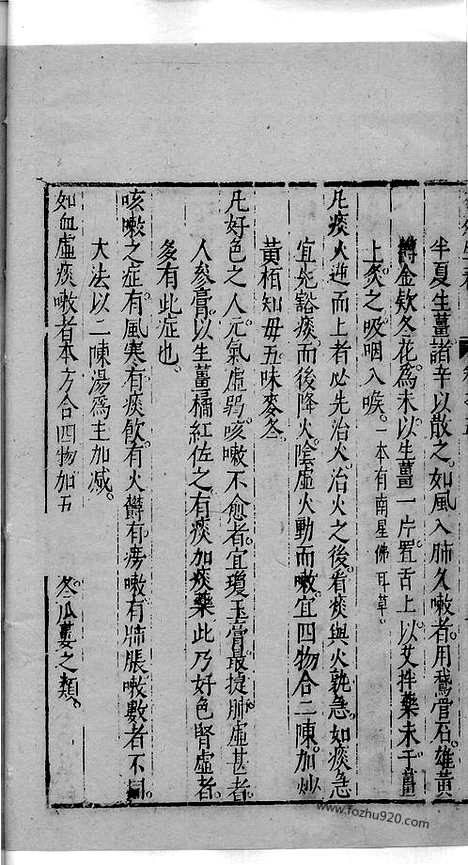 半夏生薑諸辛以散之如風入肺久嗽者用鵝管石雄黃
金欵冬花為末以生薑一片置舌上以艾拌藥末于薑
上灸之吸咽入喉一本有南星佛耳草
凡痰火逆而上者必先治火治火之後看痰與火孰急如痰急
宜先豁痰而後降火陰虛火動而嗽宜四物合二陳加炒
黃栢知母五味麥冬
凡好色之人元氣虛弱咳嗽不愈者宜瓊玉膏最捷肺虛甚者
人參膏以生薑橘紅佐之有痰加痰藥此乃好色腎虛者
多有此症也
咳嗽之症有風寒有痰飲有火欝有勞嗽有肺脹嗽數者不同
大法以二陳湯為主加減
如血虛痰嗽者本方合四物加五 冬瓜蔞之類
www.fozhu920.com